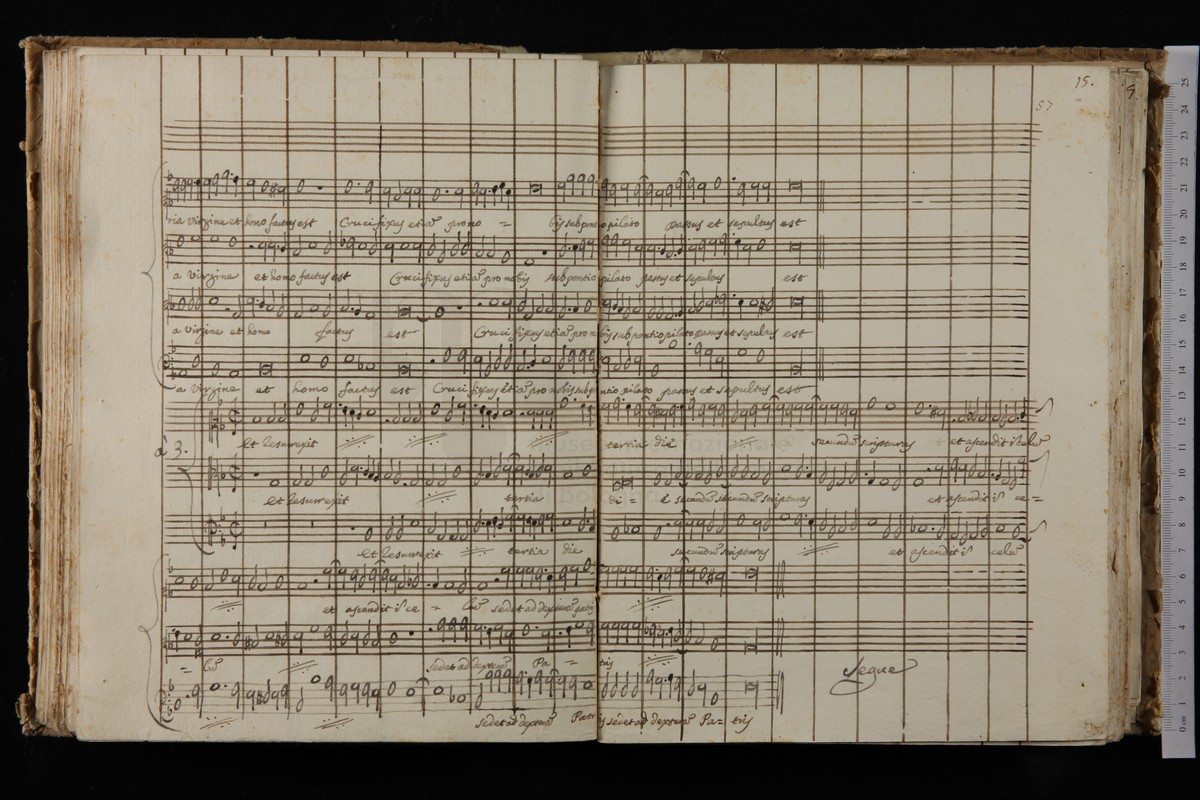 15.
57
ria virgine et homo factus est Crucifixus etiã pro no = bis sub pontio pilato passus et sepultus est
a virgine et homo factus est Crucifixus etiã pro nobis sub pontio pilato passus et sepultus est
a virgine et homo factus est Crucifixus etiã pro nobis sub pontio pilato passus et sepultus est
a virgine et homo factus est Crucifixus etiã pro nobis sub pontio pilato passus et sepultus est
à 3.
Et Resurrexit tertia die secundũ scripturas et ascendit ĩ celũ
Et Resurrexit tertia di = e secundũ secundũ scripturas et ascendit ĩ ce =
Et Resurrexit tertia die secundũ scripturas et ascendit ĩ celũ
et ascendit ĩ ce = lũ sedet ad dexterã patris
= lũ sedet ad dexterã Pa = tris
sedet ad dexterã Patris sedet ad dexterã Pa = tris
Segue